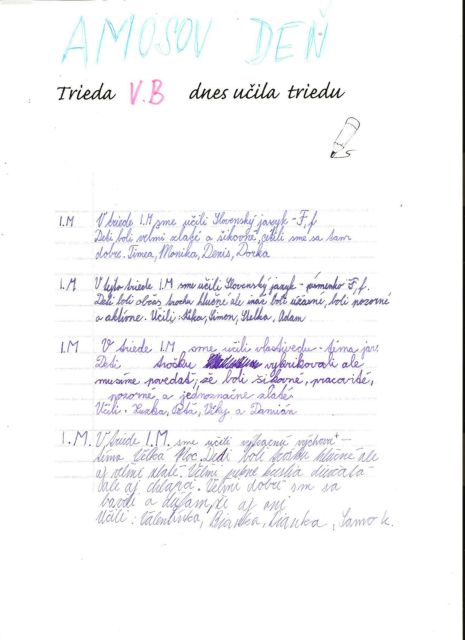 AMOSOV DEŇ
Trieda V.B dnes učila triedu
I.M V triede I.M sme učili Slovenský jazyk - F, f
Deti boli veľmi zlaté a šikovné, cítili sme sa tam
dobre. Timea, Monika, Denis, Dorka
I.M V tejto triede I.M sme učili Slovenský jazyk - písmenko F, f.
Deti boli občas trochu hlučné ale inač boli úžasné, boli pozorné
a aktívne. Učili: Simon, Stelka, Adam
I.M V triede I.M sme učili vlastivedu - téma jar.
Deti trošku vybrikovali ale
musíme povedať, že boli šikovné, pracovité,
pozorné a jednoznačne zlaté.
Učili: a Damian
I.M. V triede I.M. sme učili výchovu -
téma Veľká Noc. Deti boli trošku hlučné ale
aj veľmi zlaté. Veľmi pekne
ale aj chlapci. Veľmi dobre sme sa
bavili a dúfam, že aj oni
Učili: Valentínka, Bianka, Dianka, Samo K.